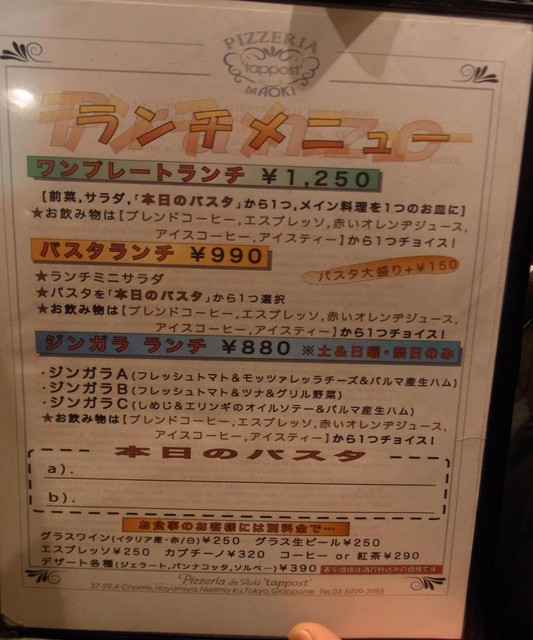 PIZZERIA
'tappost'
da AOKI
ランチメニュー
ワンプレートランチ ¥1,250
[前菜,サラダ,「本日のパスタ」から1つ,メイン料理を1つのお皿に]
★お飲み物は[ブレンドコーヒー,エスプレッソ,赤いオレンヂジュース,
アイスコーヒー,アイスティー]から1つチョイス!
パスタランチ ¥990
パスタ大盛り+¥150
★ランチミニサラダ
★パスタを「本日のパスタ」から1つ選択
★お飲み物は[ブレンドコーヒー,エスプレッソ,赤いオレンヂジュース,
アイスコーヒー,アイスティー]から1つチョイス!
ジンガラ ランチ ¥880 ※土&日曜・祭日のみ
・ジンガラA(フレッシュトマト&モッツァレッラチーズ&パルマ産生ハム)
・ジンガラB(フレッシュトマト&ツナ&グリル野菜)
・ジンガラC(しめじ&エリンギのオイルソテー&パルマ産生ハム)
★お飲み物は[ブレンドコーヒー,エスプレッソ,赤いオレンヂジュース,
アイスコーヒー,アイスティー]から1つチョイス!
本日のパスタ
a).
b).
お食事のお客様には別料金で・・・
グラスワイン(イタリア産・赤/白)¥250 グラス生ビール¥250
エスプレッソ¥250 カプチーノ¥320 コーヒー or 紅茶¥290
デザート各種(ジェラート,パンナコッタ,ソルベ…)¥390 表示価格は消費税込みの価格です
Pizzeria da Aoki 'tappost'
37-29,4-Chome, Hayamiya, Nerima-ku, Tokyo, Giappone Tel. 03-5999-3985